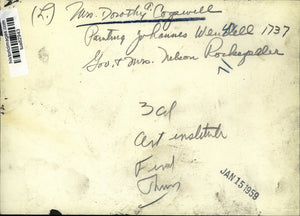 (L.) Mrs. Dorothy Cogswell
Painting Johannes Wendell 1737
Gov. & Mrs. Nelson Rockefeller
3 col
Art institute
JAN 15 1959